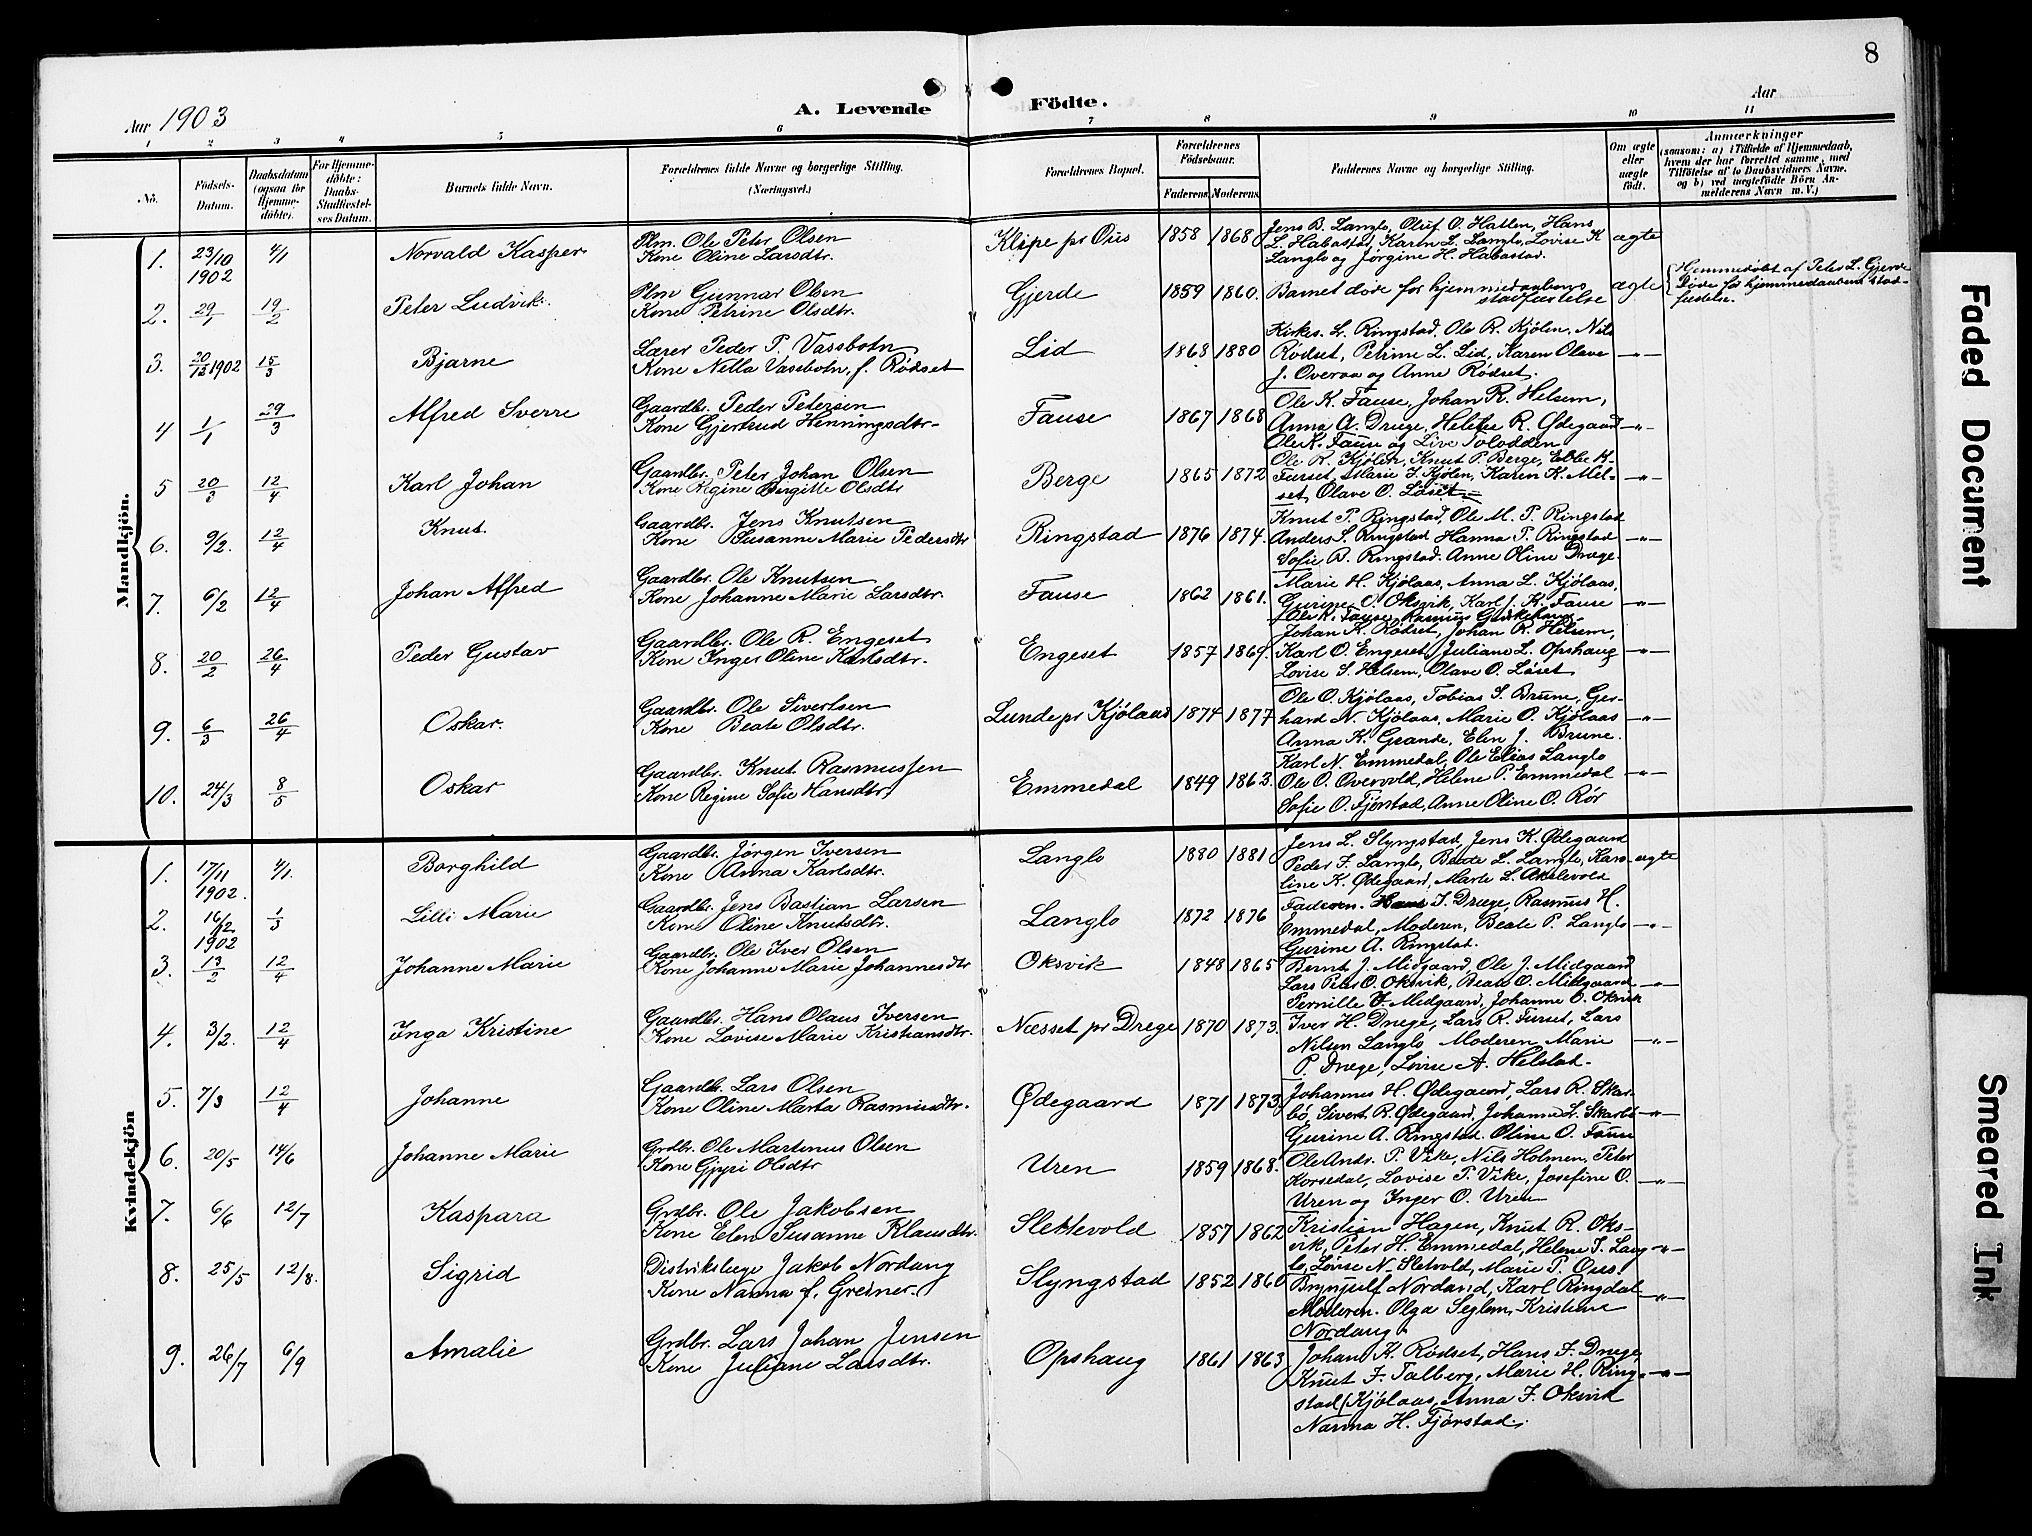 8
Aar 1903
A. Levende Födte.
Aar
1 2 3 4 5 6 7 8 9 10 11
No.
Födsels-Datum.
Daabsdatum (ogsaa for Hjemme-döbte).
For Hjemme-döbte: Daabs-Stadfæstel-ses Datum.
Barnets fulde Navn.
Forældrenes fulde Navne og borgerlige Stilling.
(Næringsvei.)
Forældrenes Bopæl.
Forældrenes Födselsaar.
Faderens. Moderens.
Faddernes Navne og borgerlige Stilling.
Om ægte eller uægte födt.
Anmærkninger
(saasom: a) i Tilfælde af Hjemmedaab, hvem der har forrettet samme, med Tilföielse af to Daabsvidners Navne. og b) ved uægtefödte Börn Anmelderens Navn m. V.)
Mandkjön.
1. 23/10 1902 4/1 Norvald Kasper
Plm. Ole Peter Olsen
Kone Oline Larsdtr.
Klipe pr Ous 1858 1868
Jens B. Langlo, Oluf O. Hatlen, Hans
L. Habostad, Karen L. Langlo, Lovise K
Langlo og Jørgine H. Habostad.
ægte
2. 29/1 19/2 Peter Ludvik
Plm Gunnar Olsen
Kone Petrine Olsdtr.
Gjerde 1859 1860.
Barnet døde før hjemmedaabens
stadfæstelse
ægte
Hjemmedøbt af Peter L. Gjerde
Døde før hjemmedaabens stad-
fæstelse.
3. 20/12 1902 15/3 Bjarne
Lærer Peder P. Vassbotn
Kone Nella Vassbotn, f. Rødset
Lid 1868 1880
Kirkes. L. Ringstad. Ole R. Kjølen, Nils
Rødset, Petrine L. Lid, Karen Olave
J. Overaa og Anne Rødset.
-"-
4 1/1 29/3 Alfred Sverre
Gaardbr. Peder Petersen
Kone Gjertrud Henningsdtr.
Fause 1867 1868
Ole K. Fause, Johan R. Helsem,
Anna A. Drege, Helene R. Ødegaard
Ole K. Fause og Live Solodden
-"-
5 20/3 12/4 Karl Johan
Gaardbr. Peter Johan Olsen
Kone Regine Birgitte Olsdtr
Berge 1865 1872
Ole R. Kjølen, Knut P. Berge, Ebbe H.
Furset, Marie J. Kjølen, Karen K. Mel-
set, Olave O. Løset
-"-
6. 9/2. 12/4 Knut.
Gaardbr. Jens Knutsen
Kone Susanne Marie Pedersdtr
Ringstad 1876 1874.
Knut P. Ringstad, Ole M. P. Ringstad
Anders S. Ringstad Hanna P. Ringstad
Sofie B. Ringstad. Anne Oline Drege.
-"-
7. 6/2 12/4 Johan Alfred
Gaardbr. Ole Knutsen
Kone Johanne Marie Larsdtr.
Fause 1862 1861.
Marie H. Kjølaas, Anna L. Kjølaas,
Gurine O. Oksvik, Karl J. K. Fause
Ole K. Fause, Rasmus
-"-
8. 20/2 26/4 Peder Gustav
Gaardbr. Ole R. Engeset
Kone Inger Oline Karlsdtr.
Engeset 1857 1869.
Johan K. Rødset, Johan R. Helsem,
Karl O. Engeset, Juliane L. Opshaug
Lovise S. Helsem, Olave O. Løset
-"-
9. 6/3 26/4 Oskar.
Gaardbr. Ole Sivertsen
Kone Beate Olsdtr.
Lunde pr Kjølaas 1874 1877
Ole O. Kjølaas, Tobias S. Brune, Ger-
hard N. Kjølaas, Marie O. Kjølaas
Anna K. Grande, Elen J. Brune.
-"-
10. 24/3 8/5 Oskar
Gaardbr. Knut Rasmussen
Kone Regine Sofie Hansdtr.
Emmedal 1849 1863.
Karl N. Emmedal, Ole Elias Langlo
Ole O. Overvold, Helene P. Emmedal
Sofie O. Fjørstad, Anne Oline O. Rør
-"-
Kvindekjön
1. 17/11 1902. 4/1. Borghild
Gaardbr. Jørgen Iversen
Kone Anna Karlsdtr.
Langlo 1880 1881
Jens L. Slyngstad, Jens K. Ødegaard
Peder J. Langlo, Beate L. Langlo, Karo-
line K. Ødegaard, Marte L. Akslevold
ægte
2. 16/12 1902 1/3 Lilli Marie
Gaardbr. Jens Bastian Larsen
Kone Oline Knutsdtr.
Langlo 1872 1876
Faderen. Hans I. Drege, Rasmus H.
Emmedal, Moderen, Beate P. Langlo
Gurine A. Ringstad.
-"-
3. 13/2 12/4 Johanne Marie
Gaardbr. Ole Iver Olsen
Kone Johanne Marie Johannesdtr
Oksvik 1848 1865
Bernt J. Midgaard, Ole J. Midgaard
Lars Peter O. Oksvik, Beate O. Midgaard
Pernille J. Midgaard, Johanne O. Oksvik
-"-
4. 3/2. 12/4 Inga Kristine
Gaardbr. Hans Olaus Iversen
Kone Lovise Marie Kristiansdtr.
Næsset pr Drege 1870 1873.
Iver H. Drege, Lars R. Furset, Lars
Nilsen Langlo Moderen Marie
P. Drege, Lovise A. Helstad.
-"-
5. 7/3 12/4 Johanne
Gaardbr. Lars Olsen
Kone Oline Marta Rasmusdtr.
Ødegaard 1871 1873
Johannes H. Ødegaard, Lars R. Skar-
bø, Sivert R. Ødegaard, Johanne L. Skarbø
Gurine A. Ringstad. Oline O. Fause
-"-
6. 20/5 14/6 Johanne Marie
Grdbr. Ole Martinus Olsen
Kone Gjyri Olsdtr
Uren 1859 1868.
Ole Andr. P. Vike, Nils Holmen, Peter
Korsedal, Lovise P. Vike, Josefine O.
Uren og Inger O. Uren
-"-
7. 6/6 12/7 Kaspara
Grdbr. Ole Jakobsen
Kone Elen Susanne Klausdtr.
Slettevold 1857 1862
Kristian Hagen, Knut R. Oks-
vik, Peter H. Emmedal, Helene S. Lang
lo, Lovise N. Sletvold, Marie P. Ous.
-"-
8. 25/5 12/8. Sigrid
Distrikslæge Jakob Nordang
Kone Nanna f. Greiner.
Slyngstad 1852 1860
Brynjulf Nordand, Karl Ringdal
Moderen. Olga Seglem, Kristine
Nordang.
-"-
9. 26/7 6/9 Amalie
Grdbr. Lars Johan Jensen
Kone Juliane Larsdtr.
Opshaug 1861 1863
Johan K. Rødset, Hans I. Drege,
Knut F. Talberg, Marie H. Ring-
stad/Kjølaas, Anna F. Oksvik
Nanna H. Fjørstad.
-"-
Faded Document
Smeared Ink